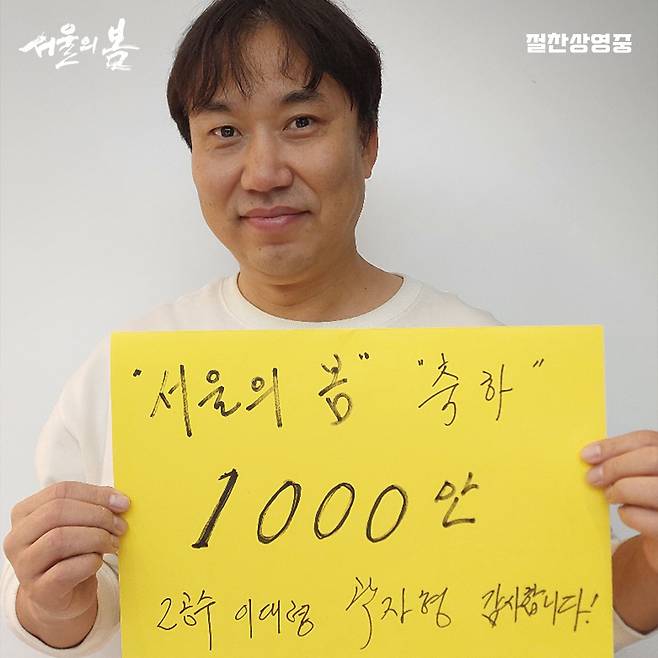 서울의 봄
절찬상영중
"서울의 봄" "축하"
1000만
2공수 이대령 곽자형 감사합니다!